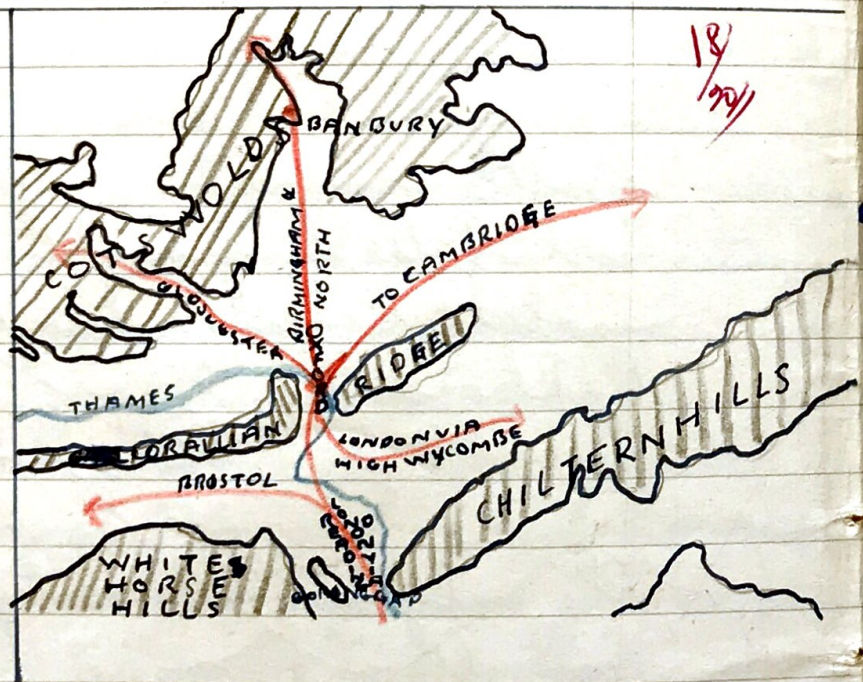 18/30
BANBURY
COTSWOLDS
BIRMINGHAM &
NORTH
TO CAMBRIDGE
GLOUCESTER
OXFORD
RIDGE
THAMES
CORALLIAN
LONDON VIA
HIGH WYCOMBE
BRISTOL
CHILTERN HILLS
WHITE
HORSE
HILLS
GORING GAP